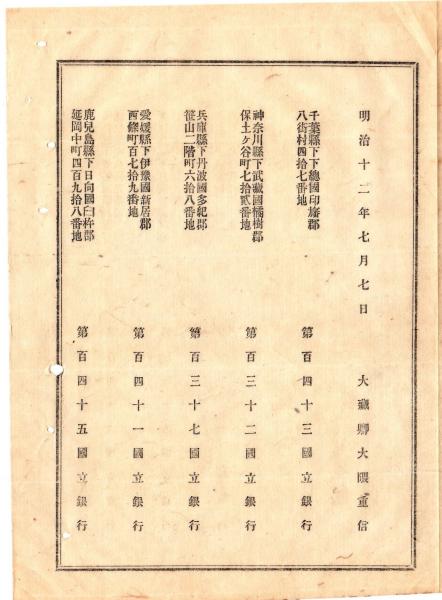 明治十二年七月七日 大藏卿大隈重信
千葉縣下下總國印旛郡
八街村四拾七番地
第百四十三國立銀行
神奈川縣下武藏國橘樹郡
保土ヶ谷町七拾貳番地
第百三十二國立銀行
兵庫縣下丹波國多紀郡
篠山二階町六拾八番地
第百三十七國立銀行
愛媛縣下伊豫國新居郡
西條町百七拾九番地
第百四十一國立銀行
鹿兒島縣下日向國臼杵郡
延岡中町四百九拾八番地
第百四十五國立銀行